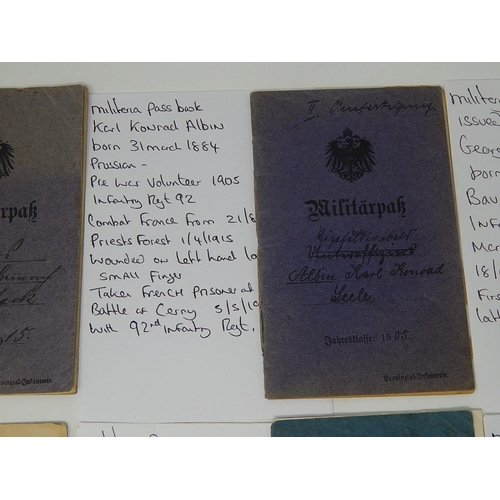 militeria pass book
Karl Konrad Albin
born 31 march 1884
Prussian -
Pre War Volunteer 1905
Infantry Regt 92
Combat France From 21/8
Priests Forest 1/4/1915
wounded on left hand lo
small Finger
Taken French Prisoner at
Battle of Cerny 5/5/19
with 92nd Infantry Regt.
II Ausfertigung
Militärpaß
Vizefeldwebel
Albin Karl Konrad
Jahresklasse: 1905.
Provinzial-Infanterie
rpaß
15.
vinzial-Infanterie
militeria
issued
Georg
born
Bav
Infa
18/
Firs